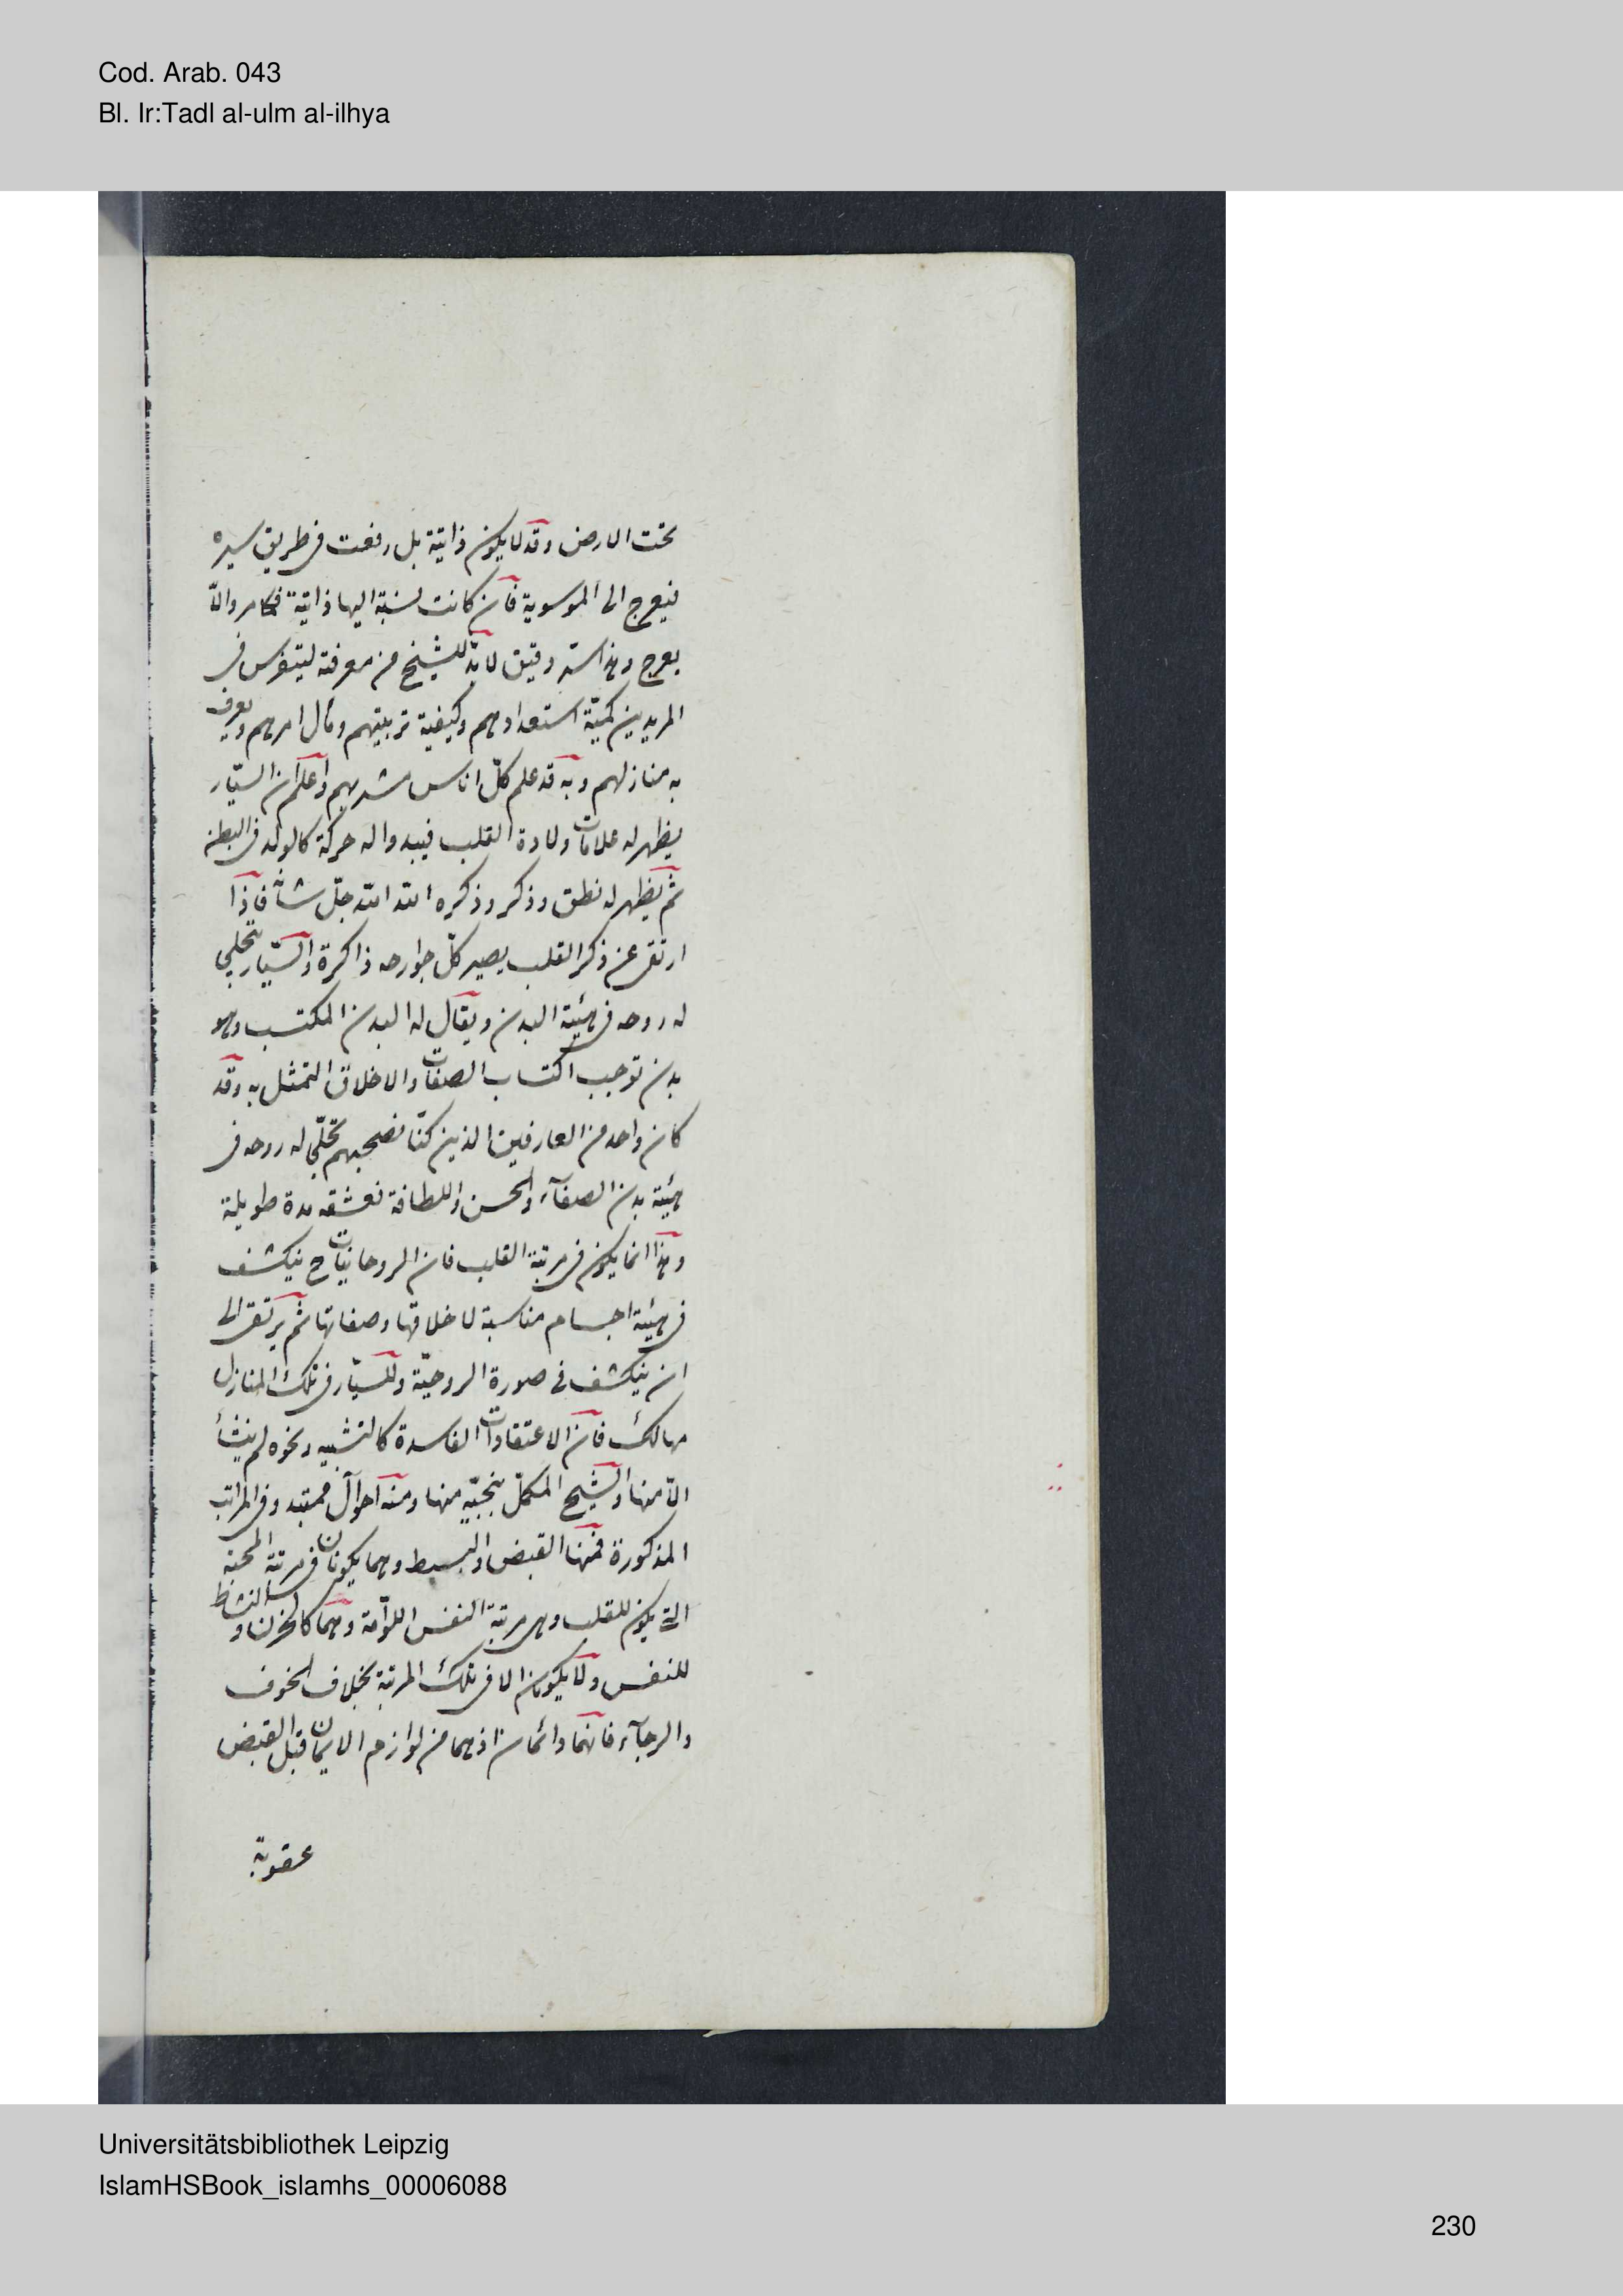 Cod. Arab. 043
Bl. Ir:Tadl al-ulm al-ilhya
تحت الارض وقد لا يكون ذاتية بل رفعت فى طريق سيره
فيعرج الى الموسوية فان كانت نسبة اليها ذاتية فكامر والّا
يعرج وهذا سرّ دقيق لابدّ للشيخ من معرفته ليتفرس فى
المريدين كميّة استعدادهم وكيفية تربيتهم ومآل امرهم ويعرف
به منازلهم وبه قد علم كلّ اناس مشربهم واعلم ان السيّار
يظهر له علامات ولادة القلب فيبدو اله حركة كالولد فى البطن
ثم يظهر له نطق وذكر وذكره الله الله جلّ شأنه فاذا
ارتقى عن ذكر القلب يصير كلّ جوارحه ذاكرة والسّيّار يتجلى
له روحه فى هيئة البدن ويقال له البدن المكتسب وهو
بدن توجب اكتساب الصفات والاخلاق التمثل به وقد
كان واحد من العارفين الذين كنّا نصحبهم تجلّى له روحه فى
هيئة بدن الصفآء والحسن واللطافة نعشقه مدة طويلة
وهذا انما يكون فى مرتبة القلب فان الروحانيات ح ينكشف
فى هيئة اجسام مناسبة لاخلاقها وصفاتها ثم يرتقى الى
ان ينكشف فى صورة الروحيّة وللسيّار فى تلك المنازل
مهالك فان الاعتقادات الفاسدة كالتشبيه ونحوه لم ينشأ
الّا منها والشيخ المكمّل ينجيه منها ومنه احوال وفى المراتب
المذكورة فمنها القبض والبسط وهما يكونان فى مرتبة المحبة
التى يكون للقلب وهى مرتبة النفس اللوّامة وهما كالحزن والنشاط
للنفس ولا يكونان الا فى تلك المرتبة بخلاف الخوف
والرجآء فانهما دائمان اذ هما من لوازم الايمان قبل القبض
عقوبة
Universitätsbibliothek Leipzig
IslamHSBook_islamhs_00006088
230